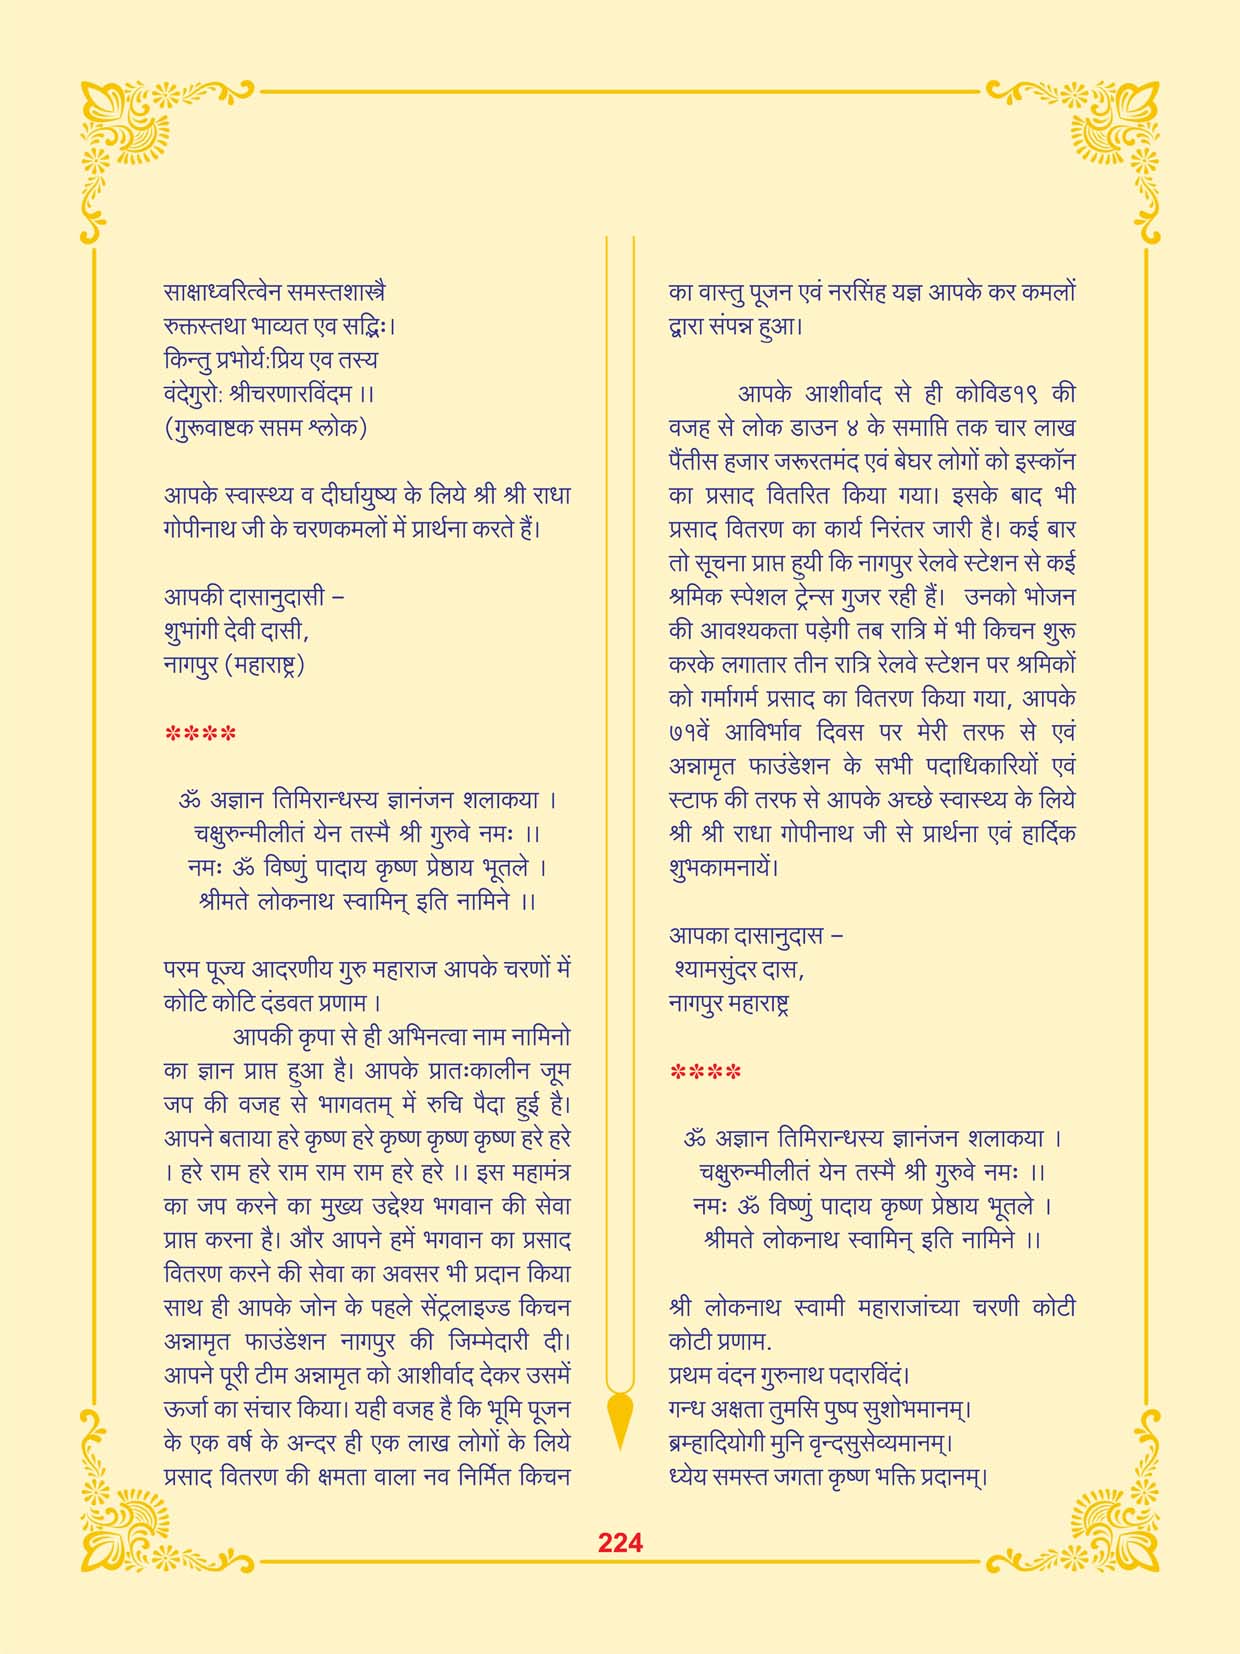 साक्षाध्वरित्वेन समस्तशास्त्रै
रुक्तस्तथा भाव्यत एव सद्भिः।
किन्तु प्रभोर्य:प्रिय एव तस्य
वंदेगुरो: श्रीचरणारविंदम ।।
(गुरूवाष्टक सप्तम श्लोक)
आपके स्वास्थ्य व दीर्घायुष्य के लिये श्री श्री राधा
गोपीनाथ जी के चरणकमलों में प्रार्थना करते हैं।
आपकी दासानुदासी –
शुभांगी देवी दासी,
नागपुर (महाराष्ट्र)
****
ॐ अज्ञान तिमिरान्धस्य ज्ञानंजन शलाकया ।
चक्षुरुन्मीलीतं येन तस्मै श्री गुरुवे नमः ।।
नमः ॐ विष्णुं पादाय कृष्ण प्रेष्ठाय भूतले ।
श्रीमते लोकनाथ स्वामिन् इति नामिने ।।
परम पूज्य आदरणीय गुरु महाराज आपके चरणों में
कोटि कोटि दंडवत प्रणाम ।
आपकी कृपा से ही अभिनत्वा नाम नामिनो
का ज्ञान प्राप्त हुआ है। आपके प्रातःकालीन जूम
जप की वजह से भागवतम् में रुचि पैदा हुई है।
आपने बताया हरे कृष्ण हरे कृष्ण कृष्ण कृष्ण हरे हरे
। हरे राम हरे राम राम राम हरे हरे ।। इस महामंत्र
का जप करने का मुख्य उद्देश्य भगवान की सेवा
प्राप्त करना है। और आपने हमें भगवान का प्रसाद
वितरण करने की सेवा का अवसर भी प्रदान किया
साथ ही आपके जोन के पहले सेंट्रलाइज्ड किचन
अन्नामृत फाउंडेशन नागपुर की जिम्मेदारी दी।
आपने पूरी टीम अन्नामृत को आशीर्वाद देकर उसमें
ऊर्जा का संचार किया। यही वजह है कि भूमि पूजन
के एक वर्ष के अन्दर ही एक लाख लोगों के लिये
प्रसाद वितरण की क्षमता वाला नव निर्मित किचन
का वास्तु पूजन एवं नरसिंह यज्ञ आपके कर कमलों
द्वारा संपन्न हुआ।
आपके आशीर्वाद से ही कोविड१९ की
वजह से लोक डाउन ४ के समाप्ति तक चार लाख
पैंतीस हजार जरूरतमंद एवं बेघर लोगों को इस्कॉन
का प्रसाद वितरित किया गया। इसके बाद भी
प्रसाद वितरण का कार्य निरंतर जारी है। कई बार
तो सूचना प्राप्त हुयी कि नागपुर रेलवे स्टेशन से कई
श्रमिक स्पेशल ट्रेन्स गुजर रही हैं। उनको भोजन
की आवश्यकता पड़ेगी तब रात्रि में भी किचन शुरू
करके लगातार तीन रात्रि रेलवे स्टेशन पर श्रमिकों
को गर्मागर्म प्रसाद का वितरण किया गया, आपके
७१वें आविर्भाव दिवस पर मेरी तरफ से एवं
अन्नामृत फाउंडेशन के सभी पदाधिकारियों एवं
स्टाफ की तरफ से आपके अच्छे स्वास्थ्य के लिये
श्री श्री राधा गोपीनाथ जी से प्रार्थना एवं हार्दिक
शुभकामनायें।
आपका दासानुदास –
श्यामसुंदर दास,
नागपुर महाराष्ट्र
****
ॐ अज्ञान तिमिरान्धस्य ज्ञानंजन शलाकया ।
चक्षुरुन्मीलीतं येन तस्मै श्री गुरुवे नमः ।।
नमः ॐ विष्णुं पादाय कृष्ण प्रेष्ठाय भूतले ।
श्रीमते लोकनाथ स्वामिन् इति नामिने ।।
श्री लोकनाथ स्वामी महाराजांच्या चरणी कोटी
कोटी प्रणाम.
प्रथम वंदन गुरुनाथ पदारविंदं।
गन्ध अक्षता तुमसि पुष्प सुशोभमानम्।
ब्रम्हादियोगी मुनि वृन्दसुसेव्यमानम्।
ध्येय समस्त जगता कृष्ण भक्ति प्रदानम्।
224